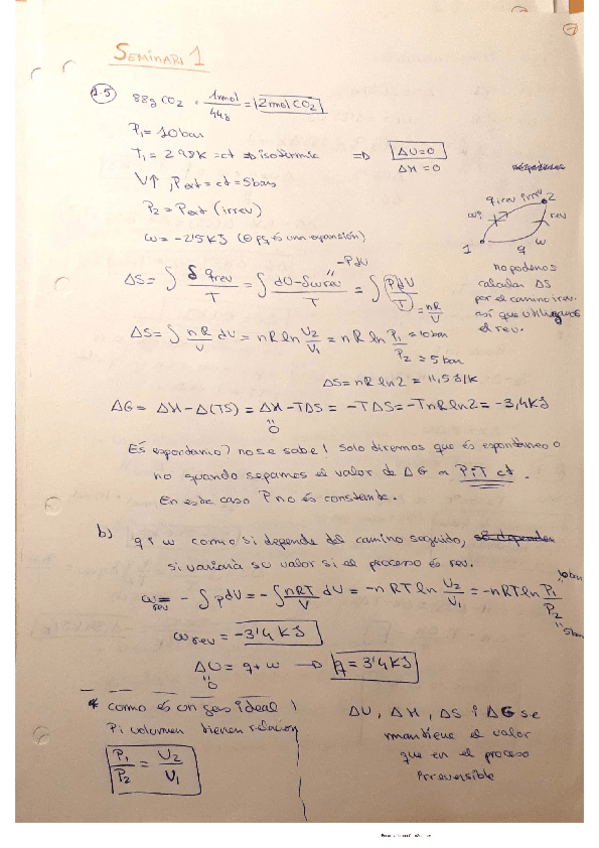 SEMINARI 1
1.5) 88g CO2 · 1mol/44g = 2mol CO2
P1 = 10bar
T1 = 298K = ct ⇒ isotermic ⇒ ΔU=0
ΔH=0
V↑, Pext = ct = 5bar
P2 = Pext (irrev)
w = -2'5KJ (⊖ pq és una expansión)
q irrev irrev 2
wi rev
1 q w
no podemos
calcular ΔS
por el camino irrev.
así que utilizamos
el rev.
ΔS = ∫ δqrev/T = ∫ (dU-δwrev)/T = ∫ PdV/T
-PdV
= nR/V
ΔS = ∫ nR/V dV = nR ln V2/V1 = nR ln P1/P2 = 10bar
= 5bar
ΔS = nR ln2 = 11,5J/K
ΔG = ΔH-Δ(TS) = ΔH-TΔS = -TΔS = -TnRln2 = -3,4KJ
0
És espontamo? no se sabe! Solo diremos que és espontáneo o
no quando sepamos el valor de ΔG a P i T ct.
En este caso P no és constante.
b) q i w como si depende del camino seguido,
si variará su valor si el proceso és rev.
wrev = -∫pdV = -∫ nRT/V dV = -nRT ln V2/V1 = -nRT ln P1/P2
10bar
5bar
wrev = -3'4KJ
ΔU = q+w → q = 3'4KJ
0
* como és un gas ideal!
P i volumen tienen relación
P1/P2 = V2/V1
ΔU, ΔH, ΔS i ΔG se
mantiene el valor
que en el proceso
irreversible